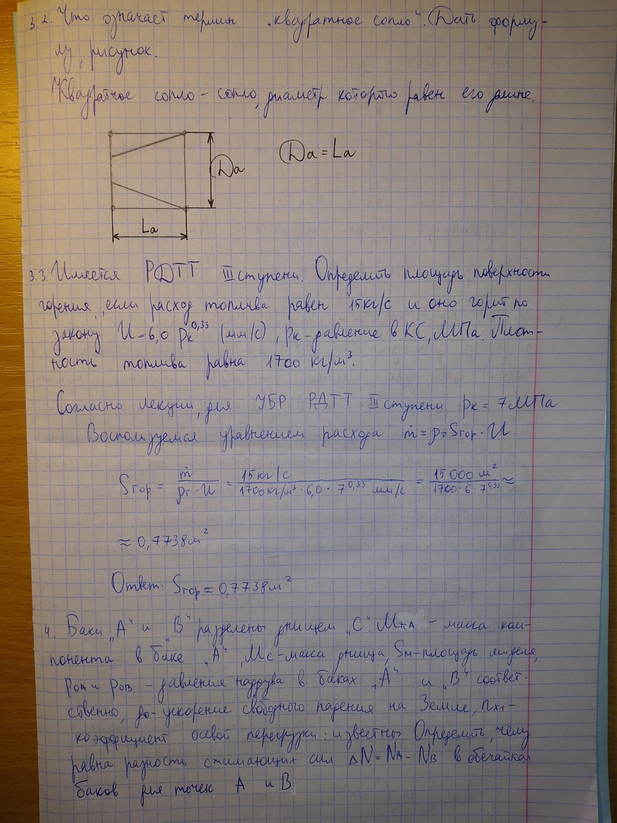 3.2. Что означает термин „квадратное сопло". Дать форму-
лу, рисунок.
Квадратное сопло - сопло, диаметр которго равен его длине.
Da
Da = La
La
3.3. Имеется РДТТ III ступени. Определить площадь поверхности
горения, если расход топлива равен 15кг/с и оно горит по
закону U=6,0 pк^0,35 (мм/с), pк - давление в КС, МПа. Плот-
ность топлива равна 1700 кг/м³.
Согласно лекции, для УБР РДТТ III ступени pк = 7МПа
Воспользуемся уравнением расхода ṁ = ρт Sгор · U
Sгор = ṁ / ρт · U = 15 кг/с / 1700кг/м³ · 6,0 · 7^0,35 мм/с = 15 000 м² / 1700 · 6 · 7^0,35 ≈
≈ 0,7738м²
Ответ: Sгор = 0,7738м²
4. Баки „А" и „В" разделены днищем „С". - масса ком-
понента в баке „А", Mс - масса днища, Sм - площадь миделя,
p0A и p0B - давления наддува в баках „А" и „В" соответ-
ственно, g0 - ускорение свободного падения на Земле, nx1 -
коэффициент осевой перегрузки: известны. Определить чему
равна разность сжимающих сил ΔN = NA - NB в обечайках
баков для точек А и В